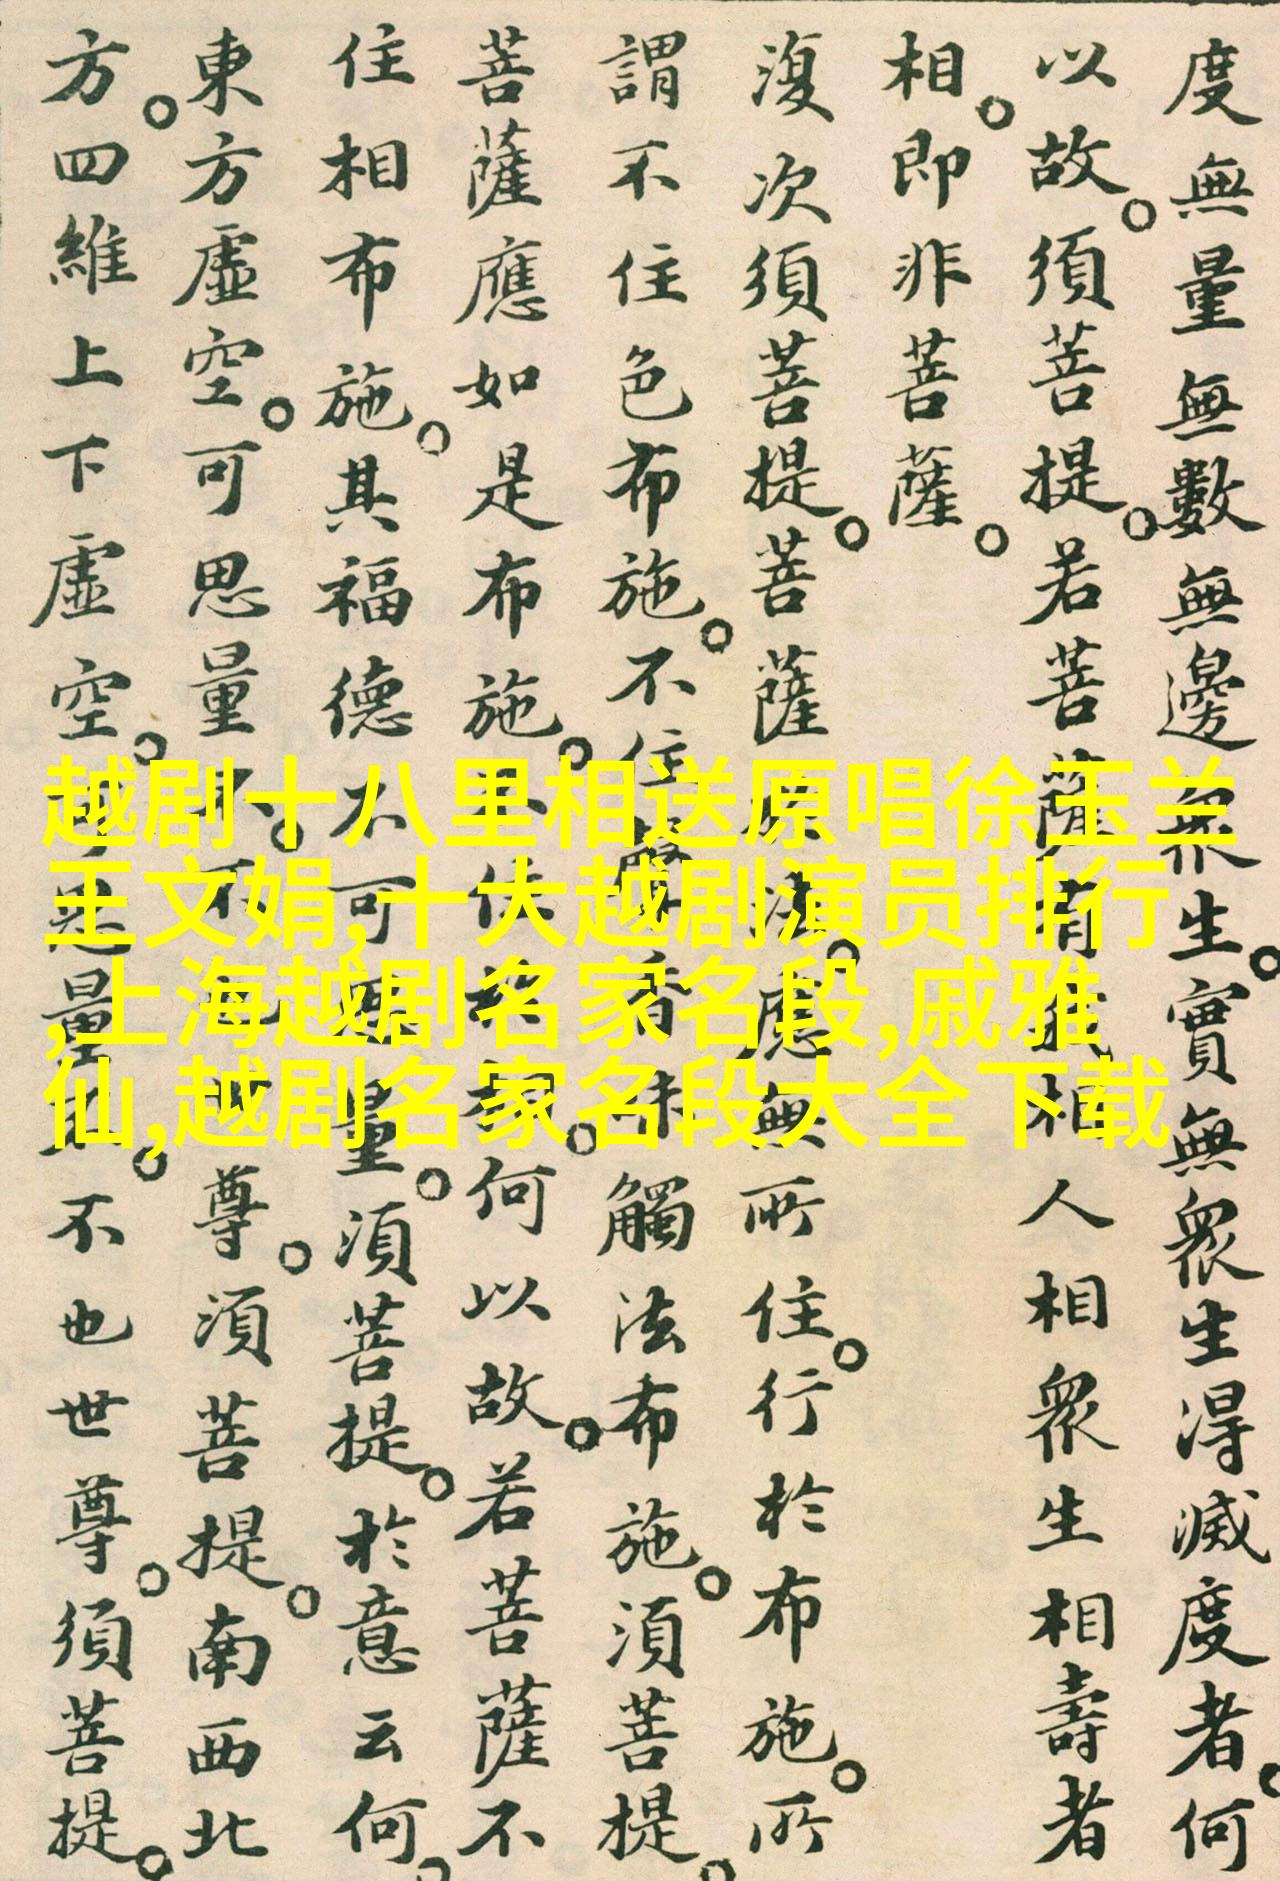 度無量無數無邊眾生。實無眾生得滅度者。何
以故。須菩提。若菩薩有我相人相眾生相壽者
相。即非菩薩。
復次須菩提。菩薩於法。應無所住。行於布施。所
謂不住色布施。不住聲香味觸法布施。須菩提。
菩薩應如是布施。不住於相。何以故。若菩薩不
住相布施。其福德不可思量。須菩提。於意云何。
東方虛空。可思量不。不也世尊。須菩提。南西北
方。四維上下虛空。可思量不。不也世尊。須菩提。
越剧十八里相送原唱徐玉兰
王文娟,十大越剧演员排行
,上海越剧名家名段,戚雅
仙,越剧名家名段大全下载